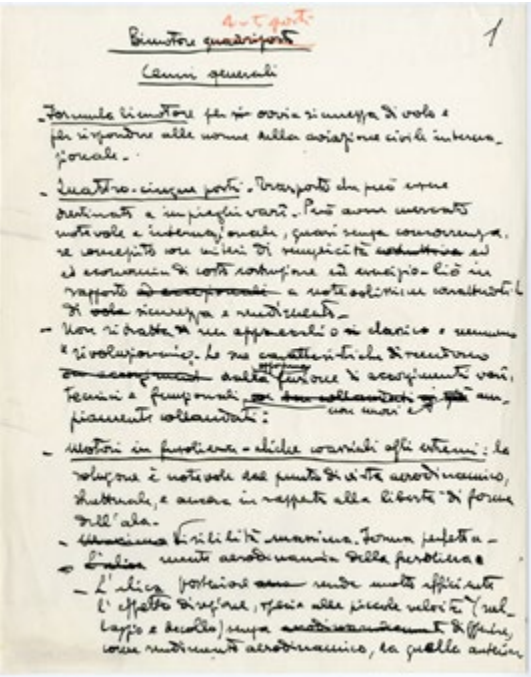 Bimotore quadriposto 1
Cenni generali
- Formula bimotore per ovvia sicurezza di volo e
per rispondere alle norme sulla aviazione civile interna-
zionale. -
- Quattro-cinque posti. Trasporto che può essere
destinato a impieghi vari. Può avere mercato
notevole e internazionale, quasi senza concorrenza,
se concepito con criteri di semplicità costruttiva ed
ed economia di costo costruzione ed esercizio. Ciò in
rapporto ad eccezionali a notevolissime caratteristi
di volo sicurezza e rendimento. -
- Non si tratta di un apparecchio classico e nemmeno
rivoluzionario. Le sue caratteristiche discendono
dalla fusione di accorgimenti vari,
tecnici e funzionali, non nuovi e già am-
piamente collaudati:
- Motori in fusoliera - eliche coassiali agli estremi: la
soluzione è notevole dal punto di vista aerodinamico,
strutturale, e ancora in rapporto alla libertà di forma
dell'ala. -
- Visibilità massima. Forma perfetta-
mente aerodinamica della fusoliera
- L'elica posteriore rende molto efficiente
l'effetto direzione, specie alle piccole velocità (rul-
laggio e decollo) senza differire,
come rendimento aerodinamico, da quella anterior